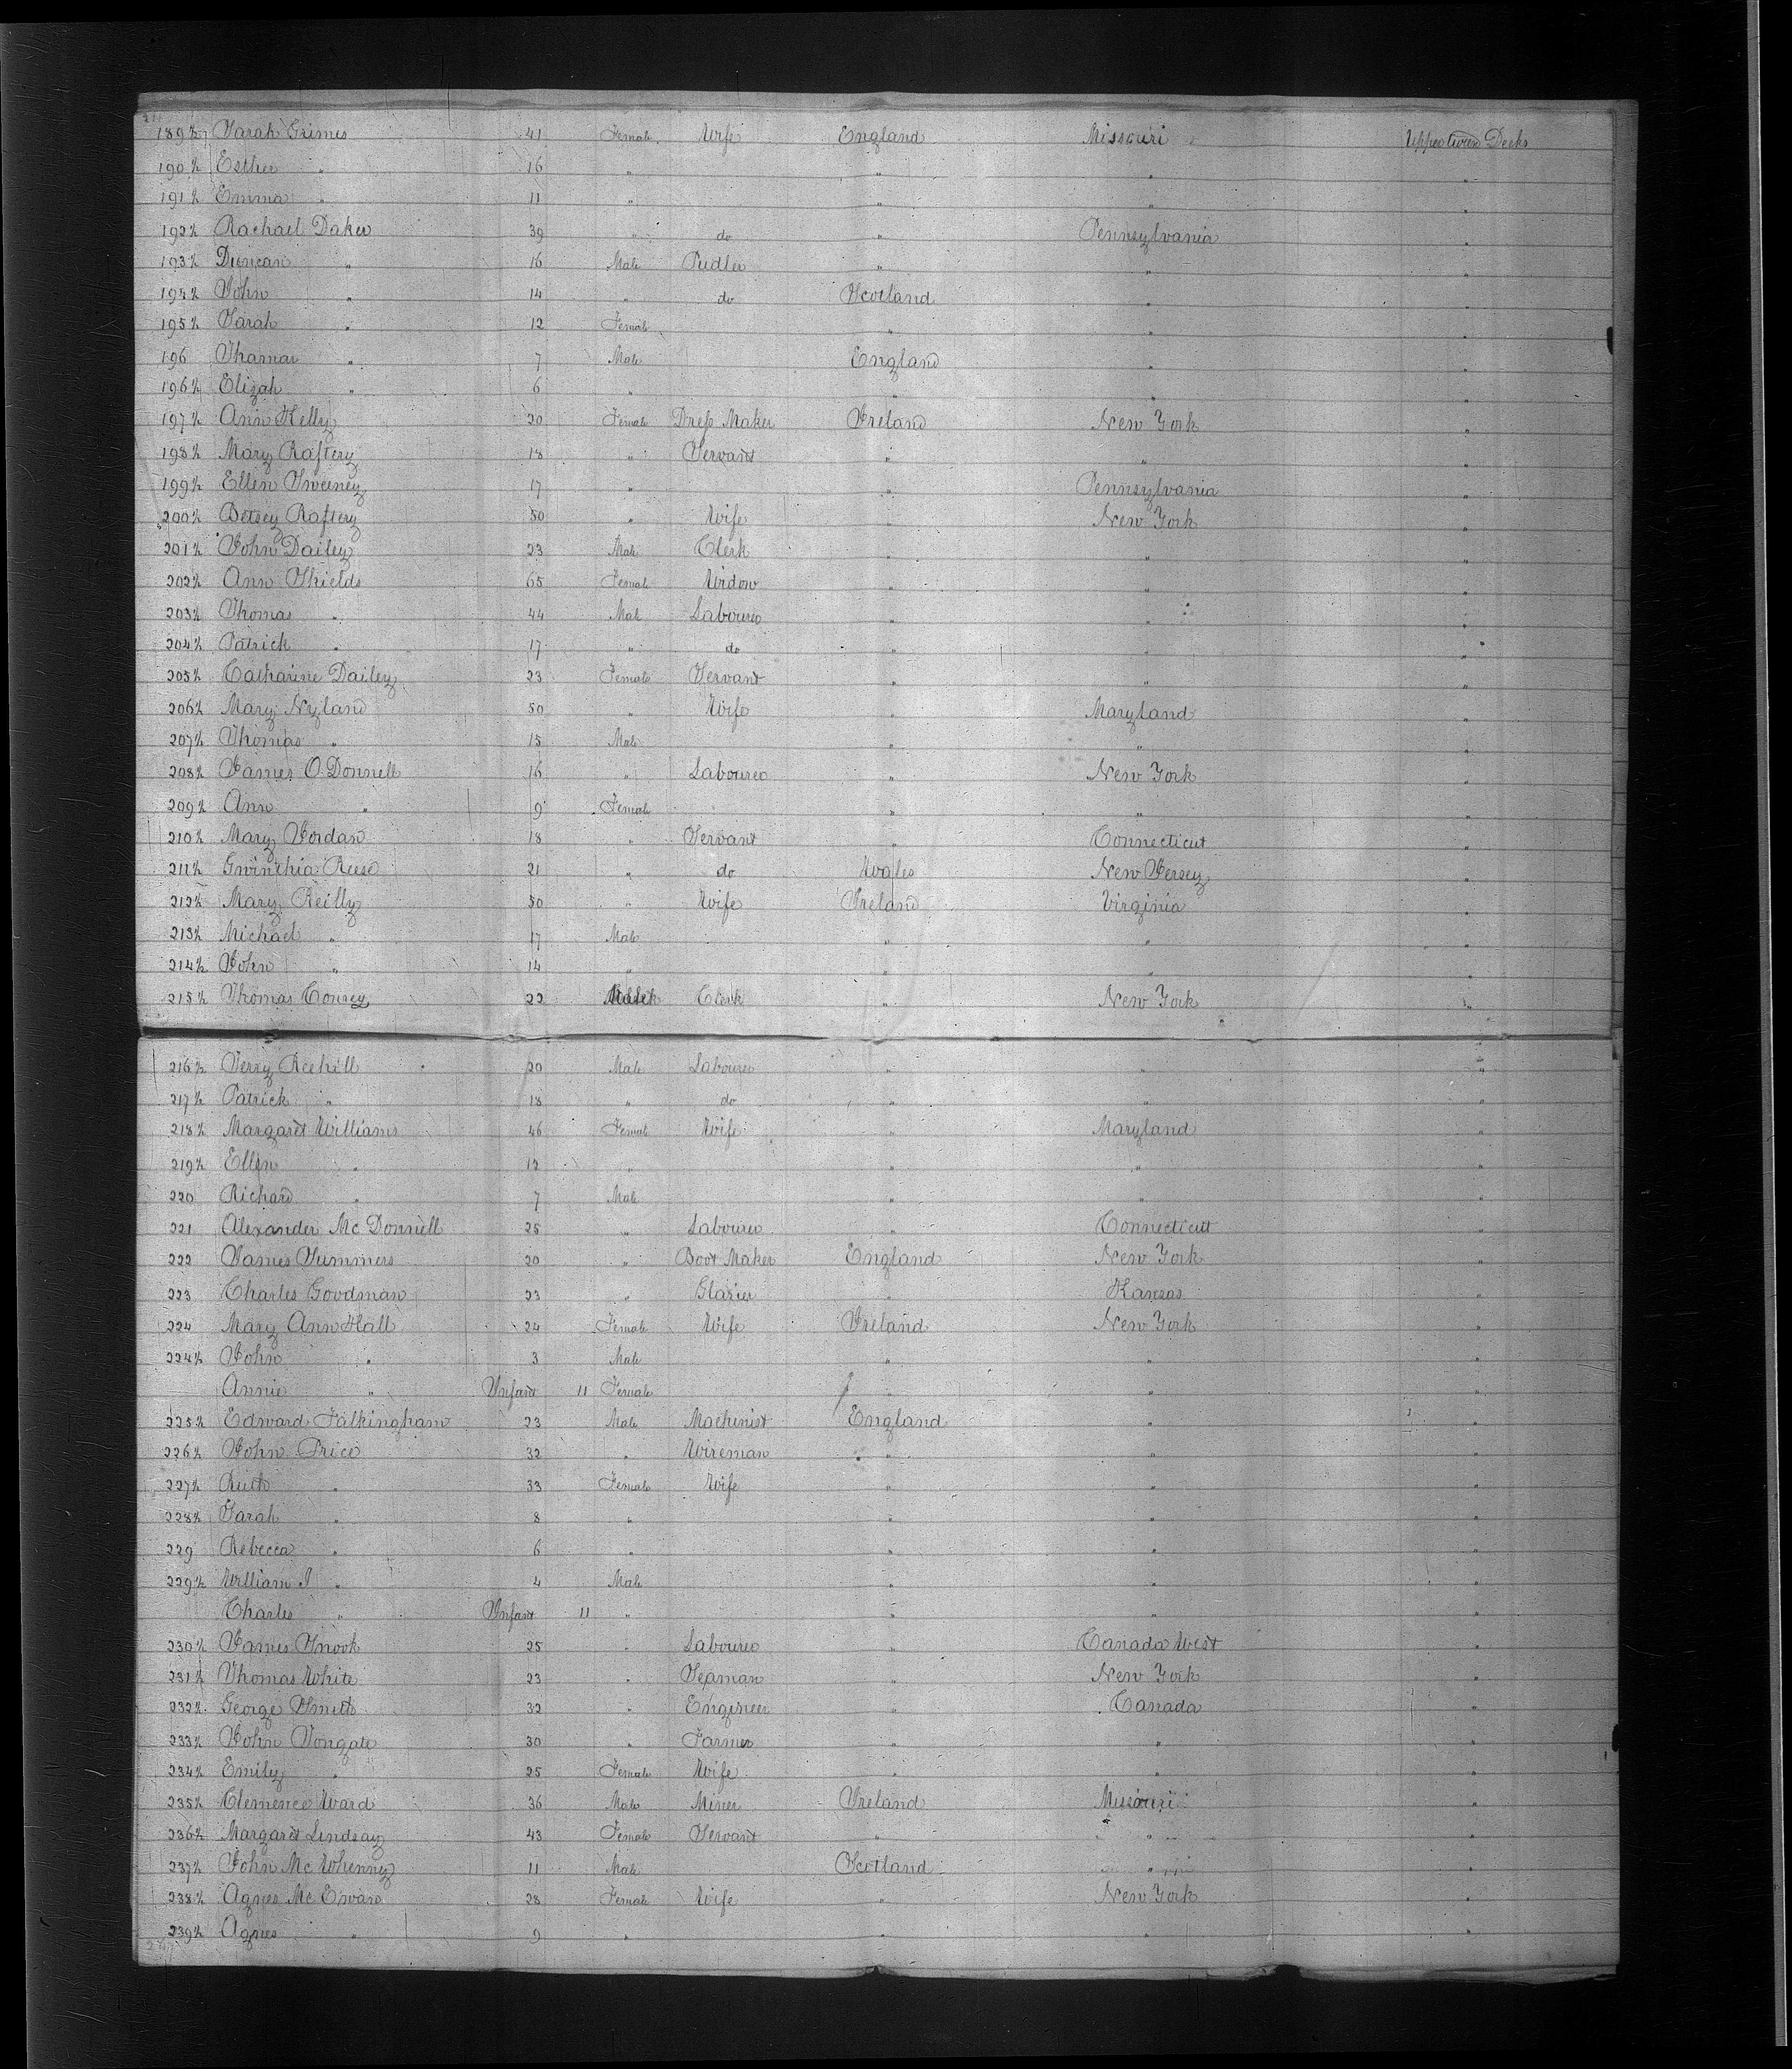 189½ Sarah Grimes 41 Female Wife England Missouri Upper tween Decks
190½ Esther " 16 " " " "
191½ Emma " 11 " " " "
192½ Rachael Daker 39 " do " Pennsylvania "
193½ Duncan " 16 Male Pudler " " "
194½ John " 14 " do Scotland " "
195½ Sarah " 12 Female " " "
196 Thamar " 7 Male England " "
196½ Elizah " 6 " " " "
197½ Ann Kelly 20 Female Dress Maker Ireland New York "
198½ Mary Raftery 18 " Servant " " "
199½ Ellen Sweeney 17 " " Pennsylvania "
200½ Betsey Raftery 50 " Wife " New York "
201½ John Dailey 23 Male Clerk " " "
202½ Ann Shields 65 Female Widow " " "
203½ Thomas " 44 Male Labourer " " "
204½ Patrick " 17 " do " " "
205½ Catharine Dailey 23 Female Servant " " "
206½ Mary Nyland 50 " Wife " Maryland "
207½ Thomas " 15 Male " " "
208½ James O.Donnell 16 " Labourer " New York "
209½ Ann " 9 Female " " "
210½ Mary Jordan 18 " Servant " Connecticut "
211½ Gwinthia Reese 21 " do Wales New Jersey "
212½ Mary Reilly 50 " Wife Ireland Virginia "
213½ Michael " 17 Male " " "
214½ John " 14 " " " "
215½ Thomas Conrey 22 Clerk " New York "
216½ Terry Reehill 20 Male Labourer " " "
217½ Patrick " 18 " do " " "
218½ Margaret Williams 46 Female Wife " Maryland "
219½ Ellen " 12 " " " "
220 Richard " 7 Male " " "
221 Alexander Mc Donnell 25 " Labourer " Connecticut "
222 James Summers 20 " Boot Maker England New York "
223 Charles Goodman 23 " Glazier " Kansas "
224 Mary Ann Hall 24 Female Wife Ireland New York "
224½ John " 3 Male " " "
Annie " Infant 11 Female " " "
225½ Edward Falkingham 23 Male Machinist England " "
226½ John Price 32 " Wireman " " "
227½ Ruth " 33 Female Wife " " "
228½ Sarah " 8 " " " "
229 Rebecca " 6 " " " "
229½ William J " 4 Male " " "
Charles " Infant 11 " " " "
230½ James Snook 25 " Labourer " Canada West "
231½ Thomas White 23 " Seaman " New York "
232½ George Smith 32 " Engineer " Canada "
233½ John Songate 30 " Farmer " " "
234½ Emily " 25 Female Wife " " "
235½ Clemence Ward 36 Male Miner Ireland Missouri "
236½ Margaret Lindsay 43 Female Servant " " "
237½ John Mc Whenney 11 Male Scotland " "
238½ Agnes Mc Ewan 28 Female Wife " New York "
239½ Agnes " 9 " " " "